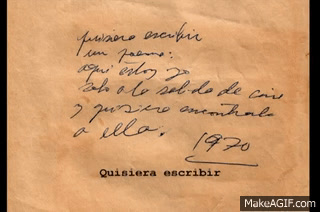 quisiera escribir
un poema:
aquí estoy yo
solo a la salida de cine
y quisiera encontrarla
a ella.
1970
Quisiera escribir
MakeAGIF.com